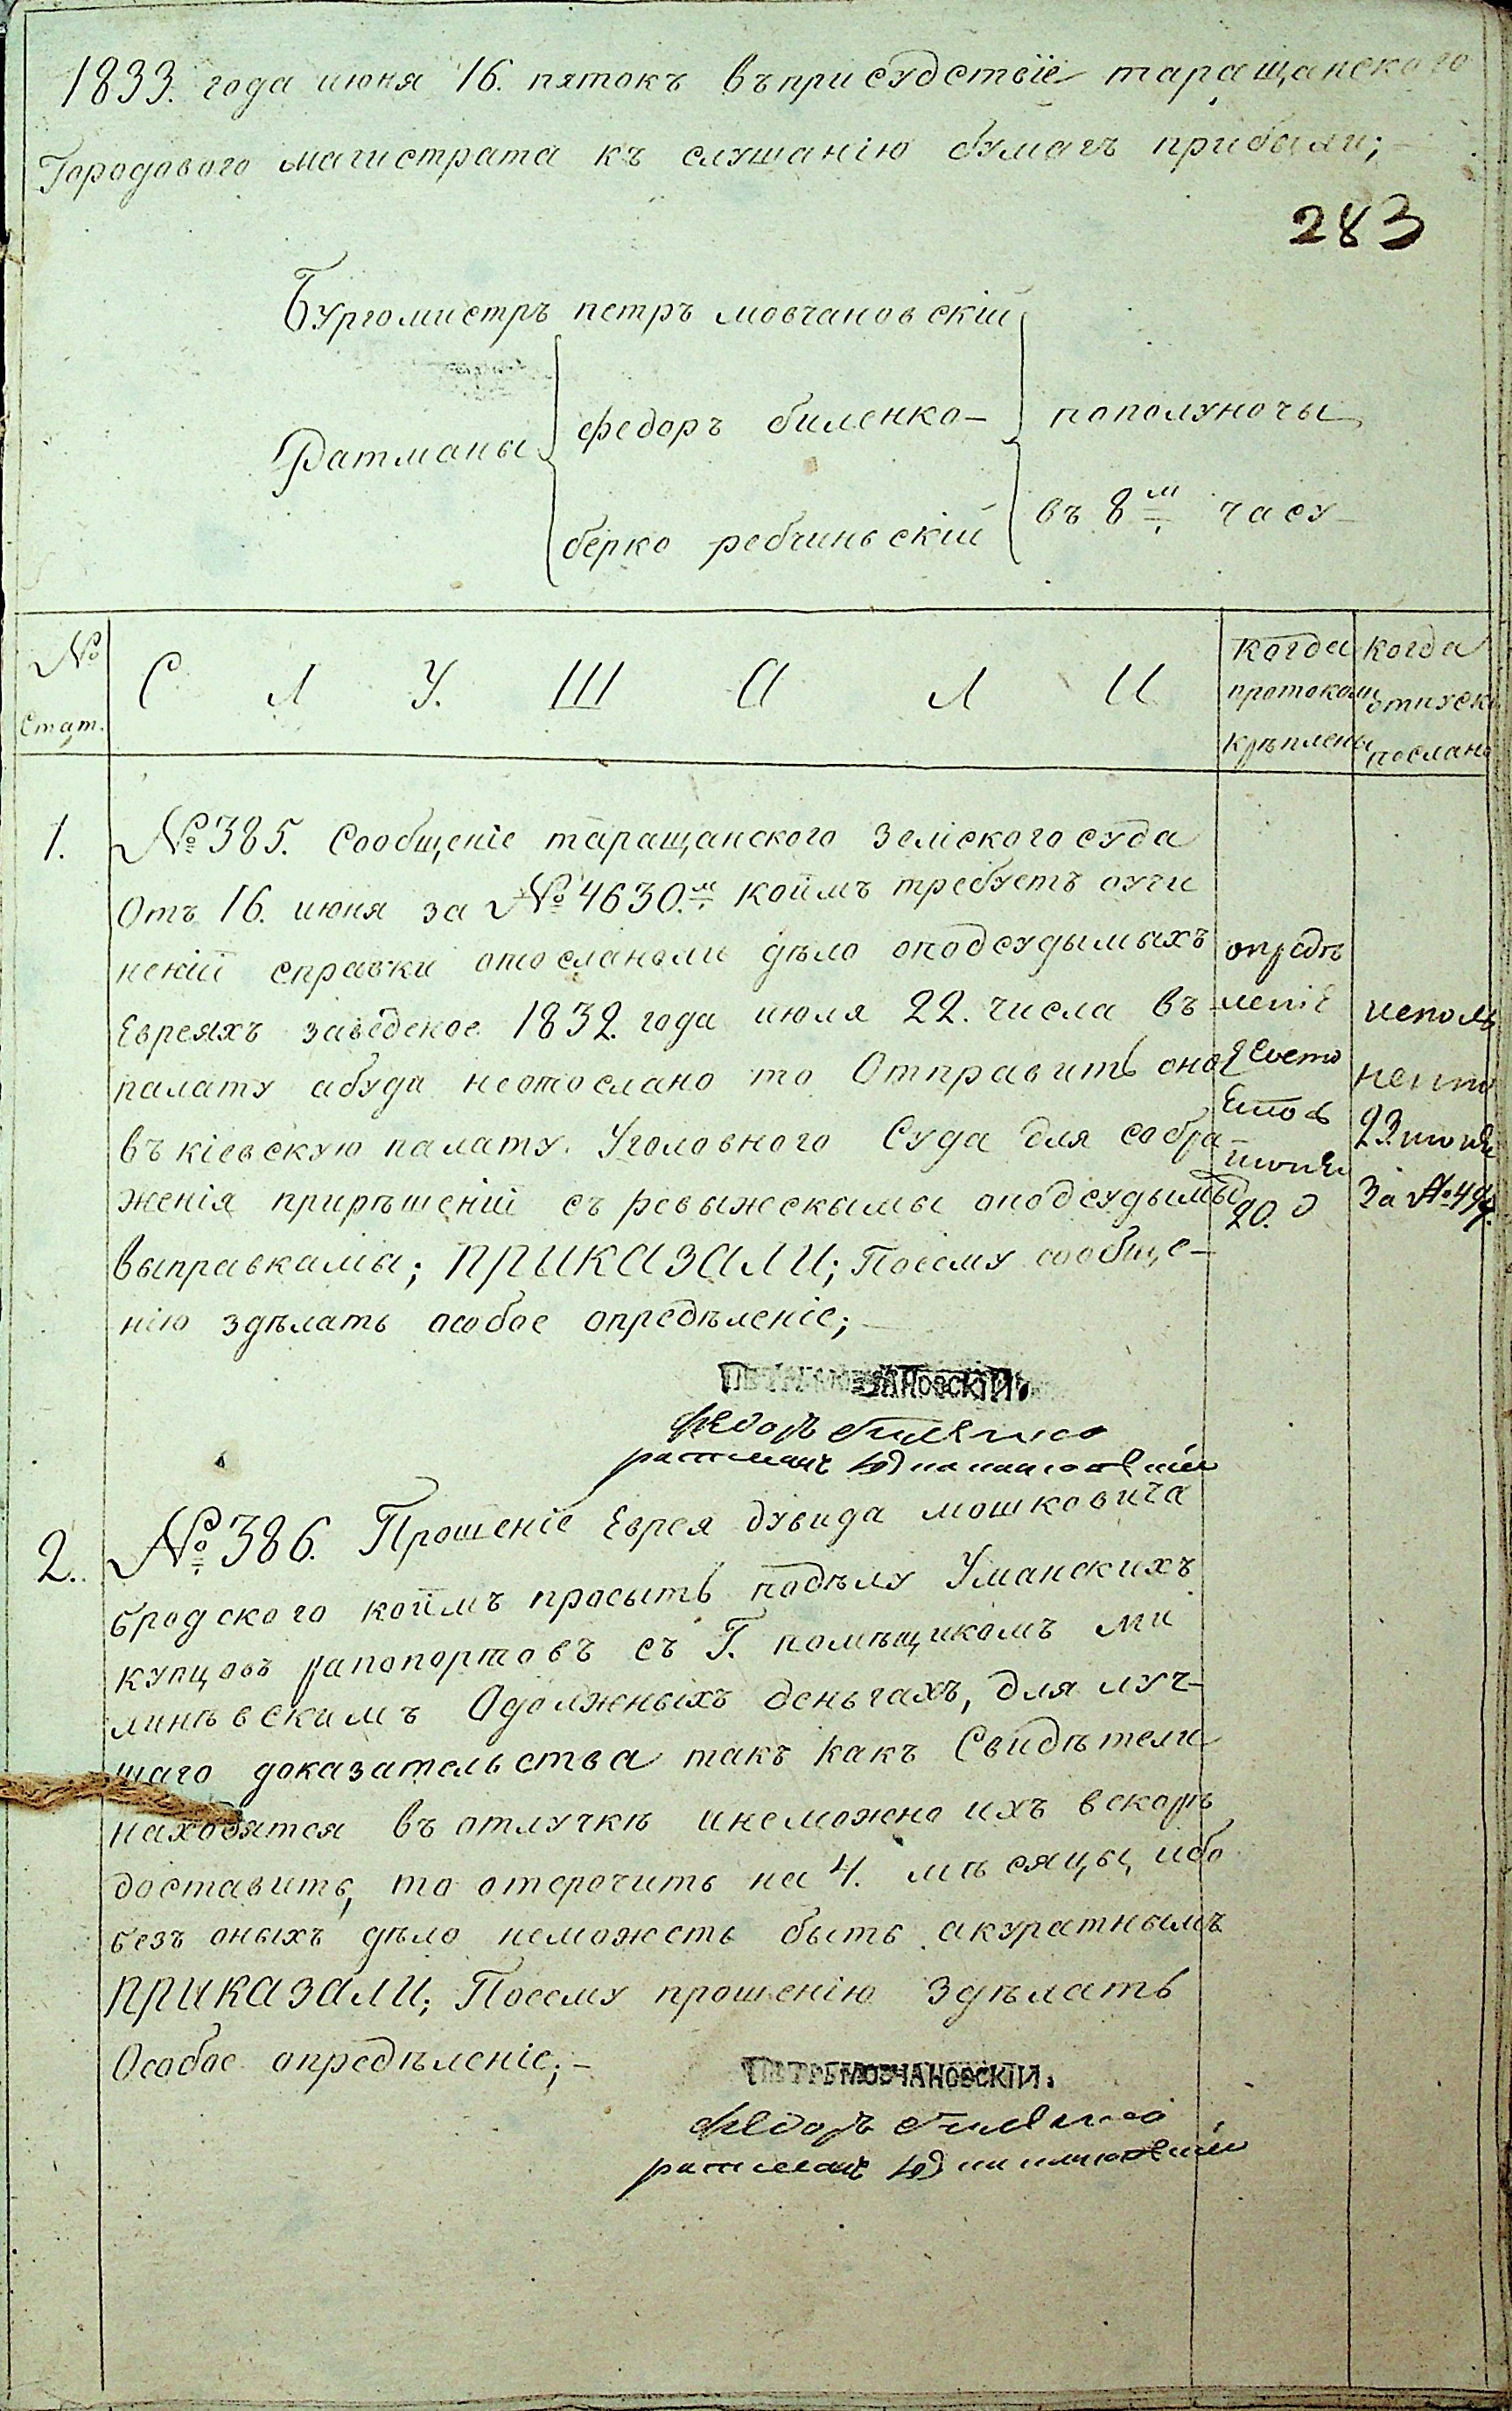 1833. года июня 16. пятокъ въприсудствіе таращанского
Городового магистрата къ слушанію бумагъ прибыли;
283
Бургомистръ петръ мовчановскій
Ратманы
федоръ биленко
берко ребчиньскій
пополуночы
въ 8м часу
№ Стат.
С Л У Ш А Л И
когда протоколы крѣплены
когда отпуски посланы
1.
№ 385. Сообщеніе таращанского земского суда
Отъ 16. июня за № 4630.м коимъ требуетъ оучи
неній справки отосланоли дѣло оподсудымыхъ
Евреяхъ заведеное 1832. года июля 22. числа въ
палату абуда неотослано то Отправить оно
въ кіевскую палату Уголовного Суда для собра
женія прирѣшеній съ ревыжскымы оподсудымы
выправкамы; ПРИКАЗАЛИ; Посему сообще-
нію здѣлать особое опредѣленіе;
опредѣ
леніе
июня
20.
исполь
нено
23 июня
За №
ПЕТРЪ МОВЧАНОВСКІЙ.
федоръ биленко
ратманъ
2.
№ 386. Прошеніе Еврея дувида мошковича
бродского коимъ просыть подѣлу Уманскихъ
купцовъ рапопортовъ съ Г. помѣщикомъ ми
линѣвскимъ Одолжныхъ деньгахъ, для луч-
шаго доказательства такъ какъ Свидѣтели
находятся въ отлучкѣ инеможно ихъ вскорѣ
доставить, то отсрочить на 4. мѣсяцы, ибо
безъ оныхъ дѣло неможеть быть акуратнымъ
ПРИКАЗАЛИ; Посему прошенію здѣлать
Особое опредѣленіе;
ПЕТРЪ МОВЧАНОВСКІЙ.
федоръ биленко
ратманъ